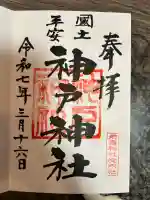 奉拝
國土
平安
神戸神社
令和七年三月十六日